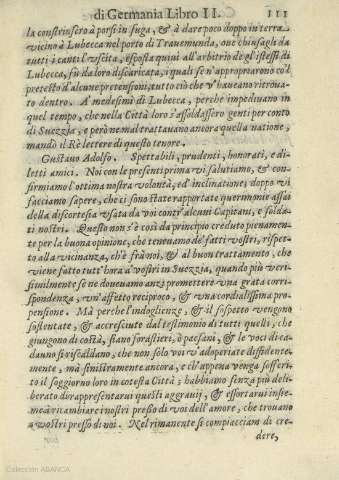 di Germania Libro II. 111
la constrinsero à porsi in fuga, & à dare poco doppo in terra
vicino à Lubecca nel porto di Trauemunda, oue chiusagli da
tutti i canti l'vscita, esposta quiui all'arbitrio de gl'istessi di
Lubecca, fù da loro discaricata, i quali se n'appropriarono col
pretesto d'alcune pretensioni, tutto ciò che v'haueano ritroua-
to dentro. A medesimi di Lubecca, perche impediuano in
quel tempo, che nella Città loro s'assoldassero genti per conto
di Suezzia, e però ne mal trattauano ancora quella natione,
mandò il Rè lettere di questo tenore.
Gustauo Adolfo. Spettabili, prudenti, honorati, e di-
letti amici. Noi con le presenti prima vi salutiamo, & con-
firmiamo l'ottima nostra volontà, ed inclinatione; doppo vi
facciamo sapere, che ci sono state rapportate querimonie assai
della discortesia vsata da voi contr'alcuni Capitani, e solda-
ti nostri. Questo non s'è così da principio creduto pienamen-
te per la buona opinione, che teneuamo de' fatti vostri, rispet-
to alla vicinanza, ch'è frà noi, & al buon trattamento, che
viene fatto tutt'hora à vostri in Suezzia, quando più veri-
similmente se ne doueuamo anzi promettere vna grata corri-
spondenza, vn'affetto reciproco, & vna cordialissima pro-
pensione. Mà perche l'indoglienze, & il sospetto vengono
sostentate, & accrescute dal testimonio di tutti quelli, che
giungono di costà, siano forastieri, ò paesani, & le voci di ca-
dauno si riscaldano, che non solo voi v'adoperiate diffidente-
mente, mà sinistramente ancora, e ch'appena venga sofferi-
to il soggiorno loro in cotesta Città; habbiamo senza più deli-
berato di rappresentarui questi aggrauij, & essortarui insie-
me à ricambiare i nostri presso di voi dell'amore, che trouano
i vostri presso di noi. Nel rimanente si compiacciam di cre-
dere,
Colección ABANCA